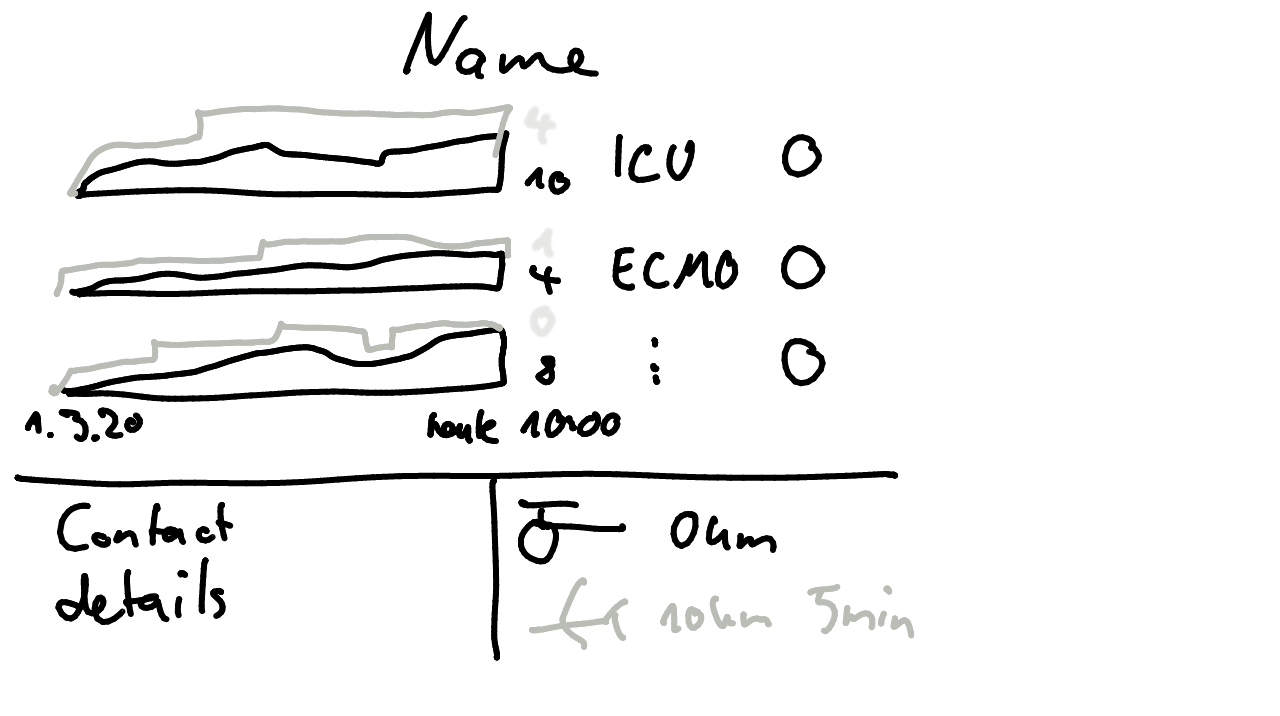 Name
4
10 ICU
1
4 ECMO
0
8 :
1.3.20 heute 10:00
Contact
details
0km
10km 5min